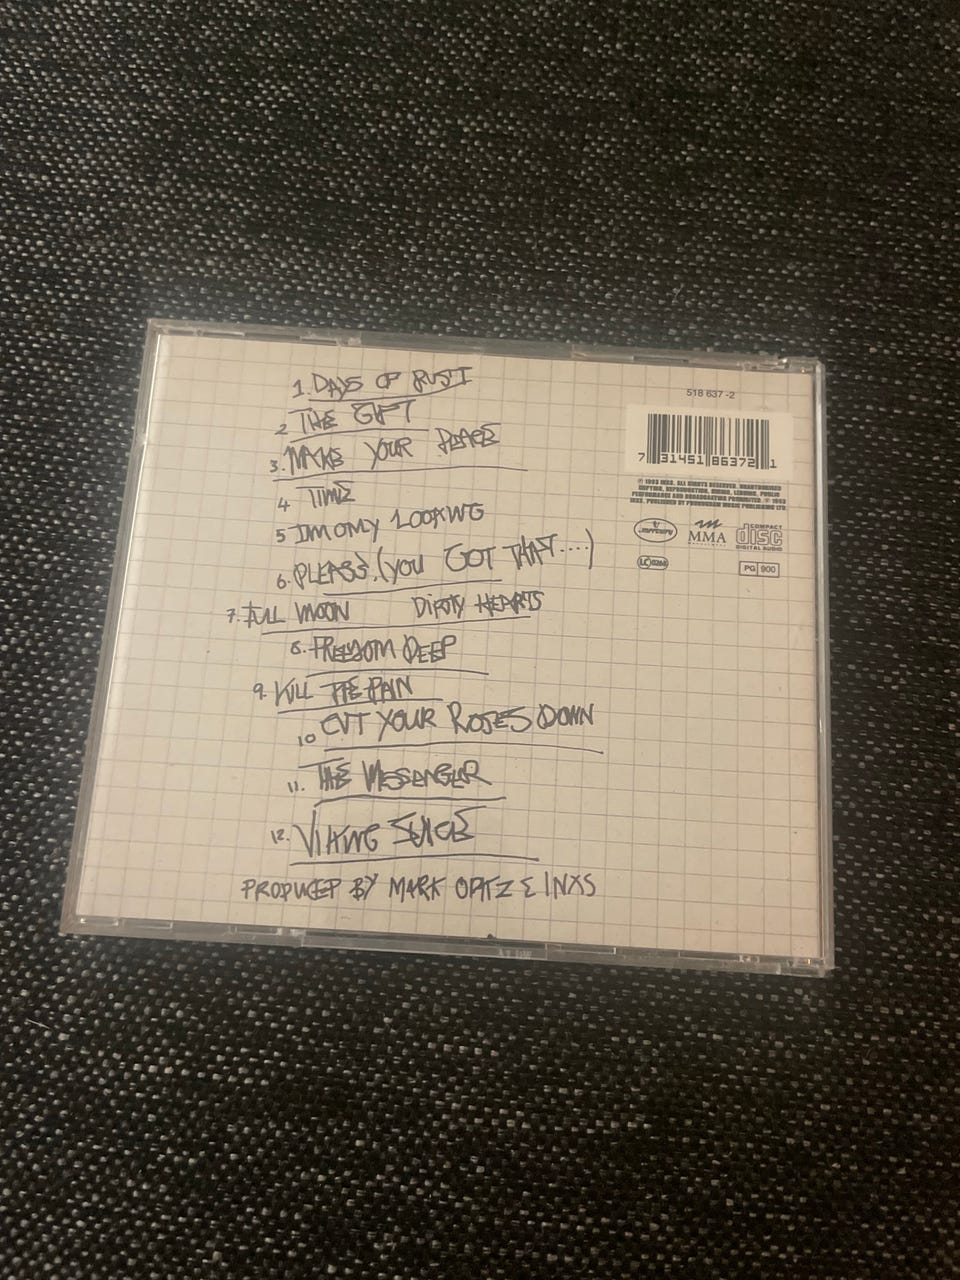 1. DAYS OF RUST
2 THE GIFT
3. MAKE YOUR PEACE
4 TIME
5 IM ONLY LOOKING
6. PLEASE.(YOU GOT THAT....)
7. FULL MOON DIRTY HEARTS
8. FREEDOM DEEP
9. KILL THE PAIN
10 CUT YOUR ROSES DOWN
11. THE MESSENGER
12. VIKING JUICE
PRODUCED BY MARK OPITZ & INXS
518 637 -2
7 31451 86372 1
℗ 1993 INXS. ALL RIGHTS RESERVED. UNAUTHORISED
COPYING, REPRODUCTION, HIRING, LENDING, PUBLIC
PERFORMANCE AND BROADCASTING PROHIBITED. © 1993
INXS. PUBLISHED BY POLYGRAM MUSIC PUBLISHING LTD
mercury
MMA
COMPACT
disc
DIGITAL AUDIO
LC 0268
PG 900